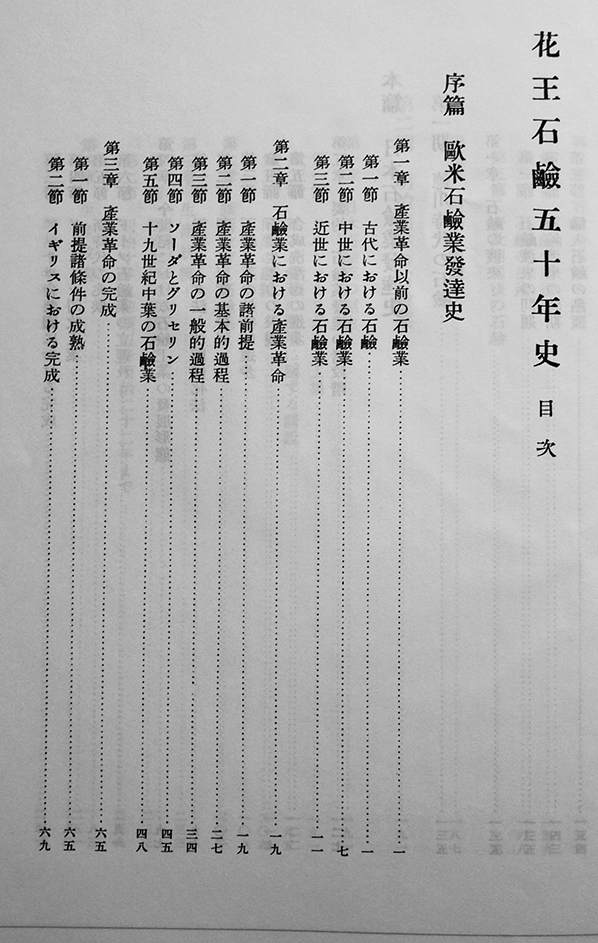 花王石鹼五十年史　目次
序篇　歐米石鹼業發達史
第一章　產業革命以前の石鹼業……一
第一節　古代における石鹼……一
第二節　中世における石鹼業……七
第三節　近世における石鹼業……一一
第二章　石鹼業における產業革命……一九
第一節　產業革命の諸前提……一九
第二節　產業革命の基本的過程……二七
第三節　產業革命の一般的過程……三四
第四節　ソーダとグリセリン……四五
第五節　十九世紀中葉の石鹼業……四八
第三章　產業革命の完成……六五
第一節　前提諸條件の成熟……六五
第二節　イギリスにおける完成……六九